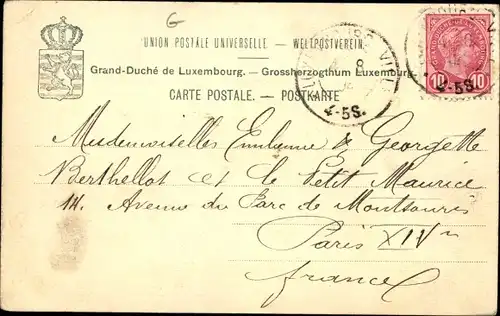 G
UNION POSTALE UNIVERSELLE. — WELTPOSTVEREIN.
Grand-Duché de Luxembourg. — Grossherzogthum Luxemburg.
CARTE POSTALE. — POSTKARTE
8
4-5S.
4-5S.
10 10
Mesdemoiselles Emilienne & Georgette
Berthellot et le Petit Maurice
14. Avenue du Parc de Montsouris
Paris XIVm
France